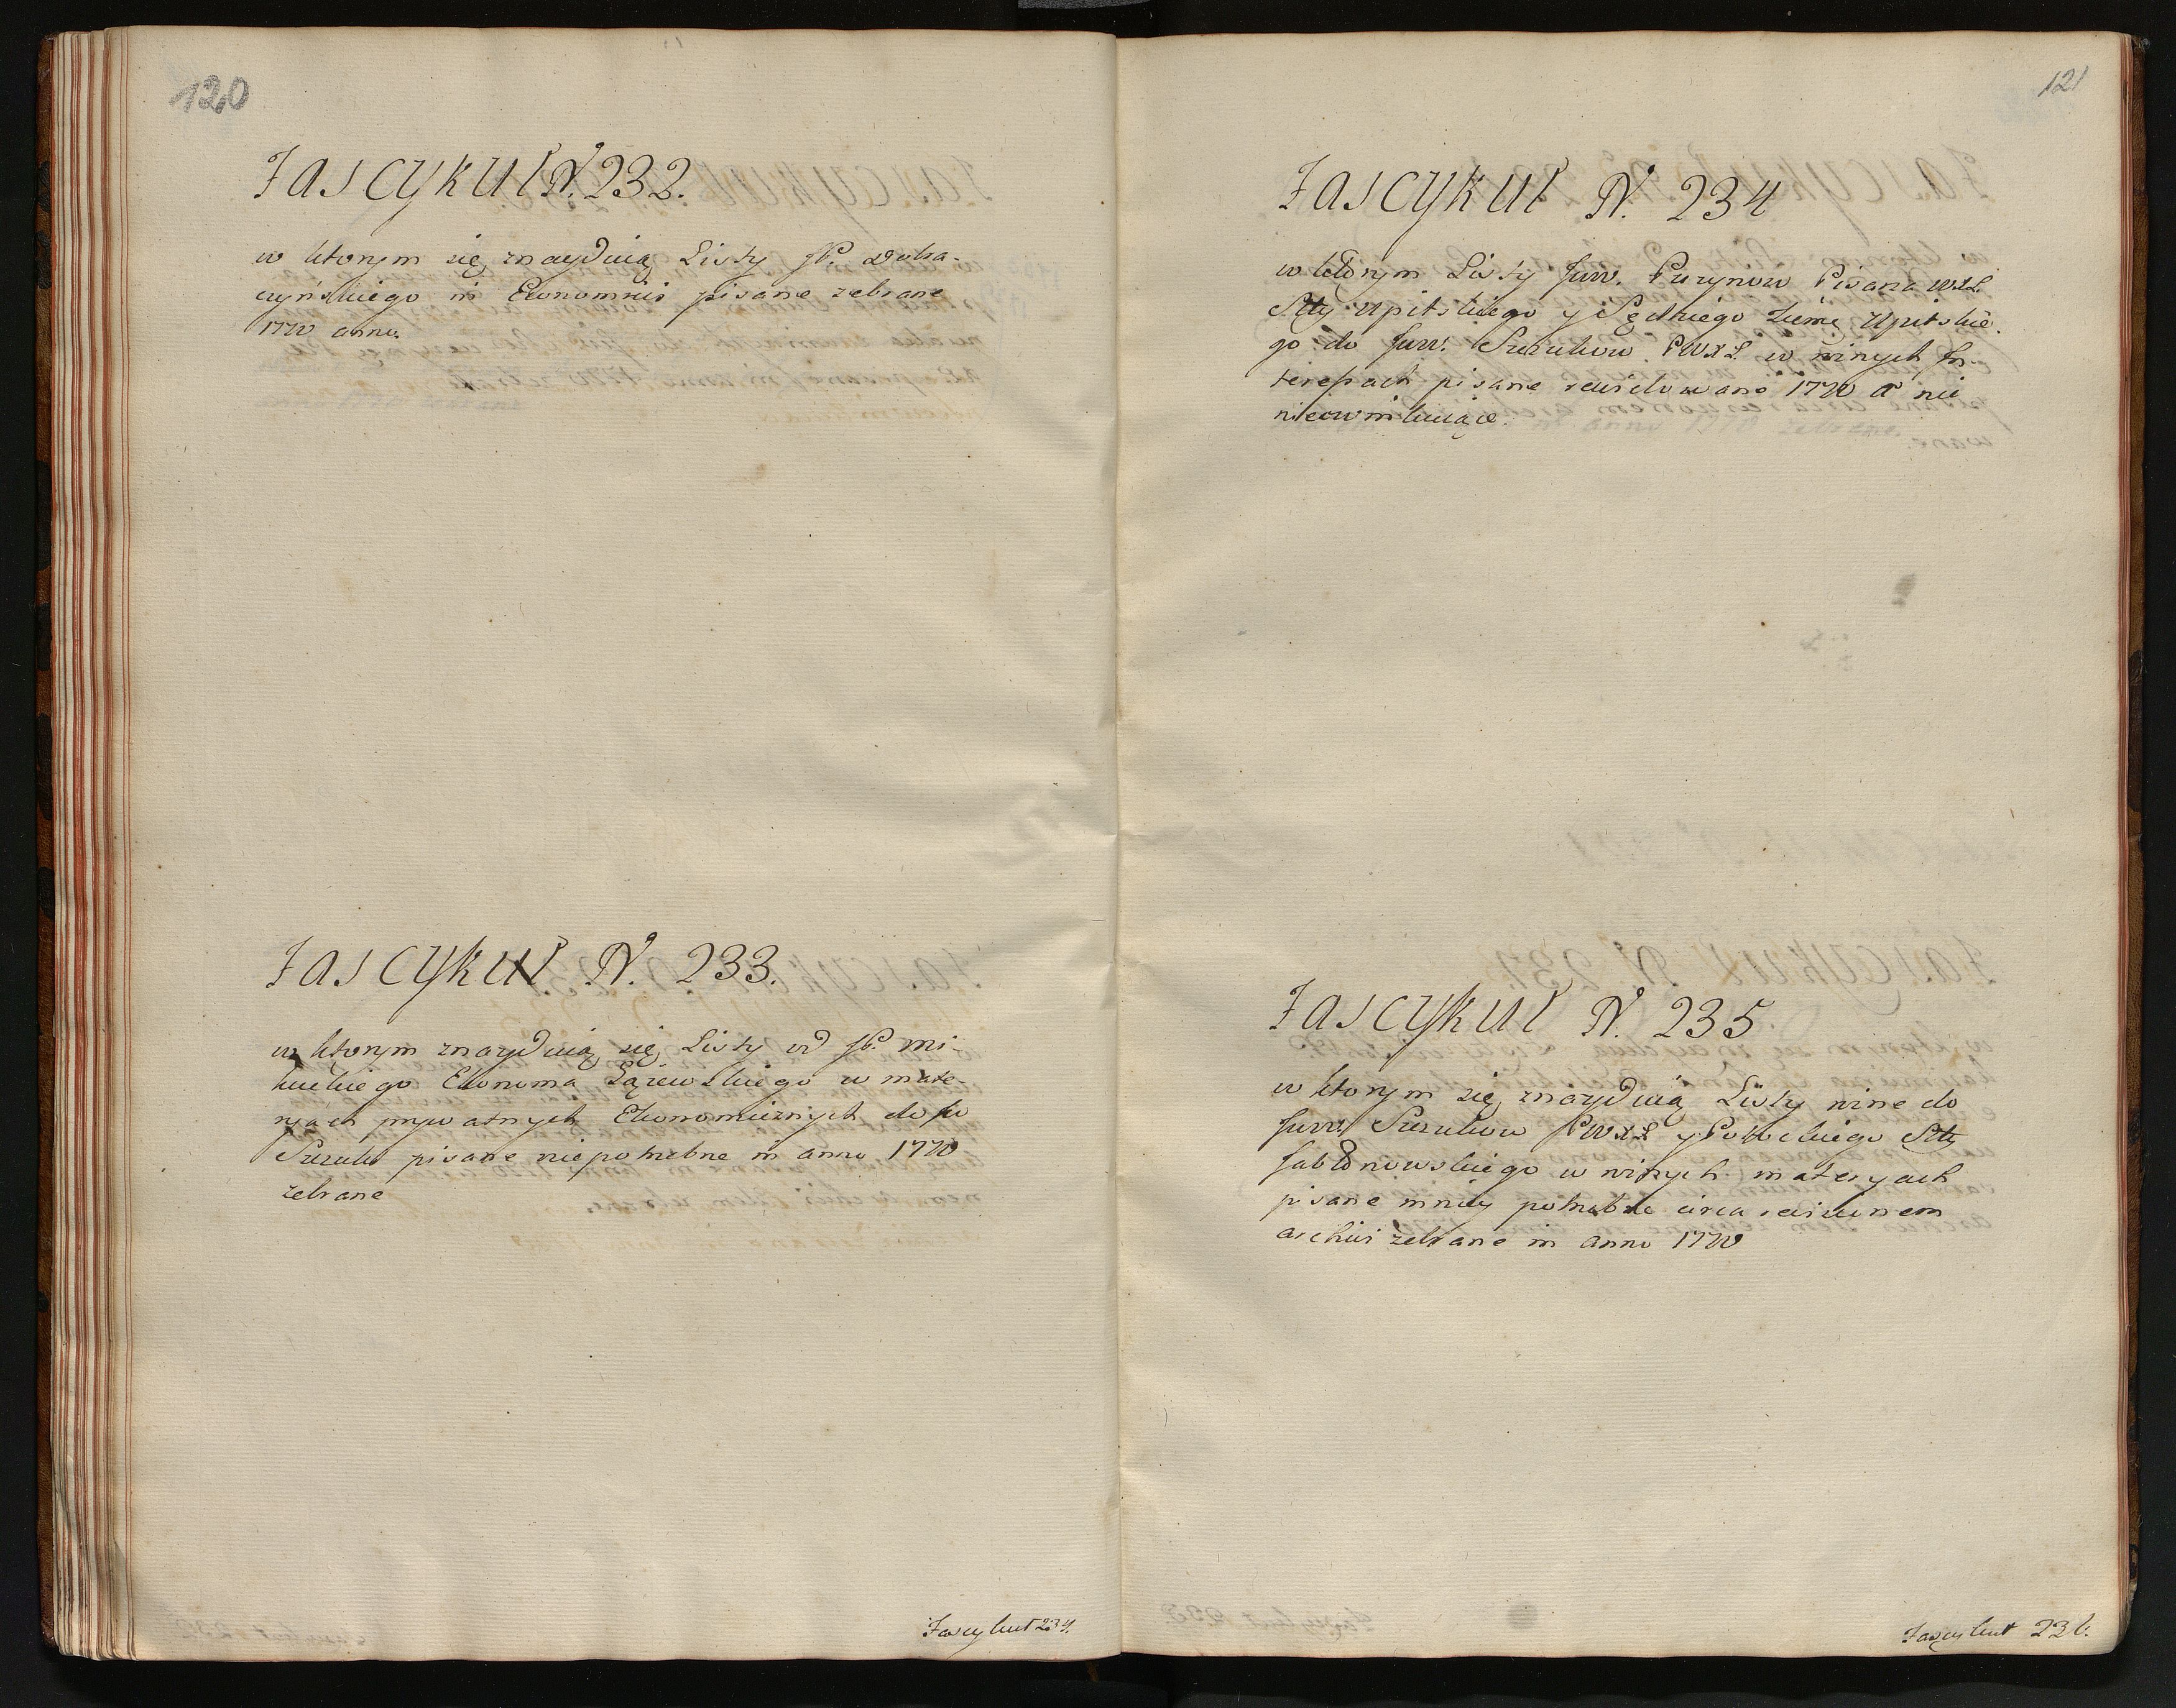 120
Fascykuł N. 232.
w ktorym się znayduią Listy JP. Dobra-
czyńskiego in Economicis pisane zebrane
1770 anno.
Fascykuł N. 233.
w ktorym znayduią się Listy od JP. Mi-
kuckiego Ekonoma w mate-
ryach prywatnych Ekonomicznych do
pisane niepotrzebne in anno 1770
zebrane
Fascykuł 234.
121
Fascykuł N. 234
w ktorym Listy Jww. Puzynow Pisarza WXL
Stty Upitskiego y Sędziego Ziemę Upitskie-
go do Jww. PWXL w rożnych In-
teressach pisane rewidowane 1770 a nic
niecwinkuiące.
Fascykuł N. 235
w ktorym się znayduią Listy rożne do
Jww. PWXL y Stty
Jabłonowskiego w rożnych materyach
pisane mniey potrzebne circa revisionem
archivi zebrane in anno 1770
Fascykuł 236.